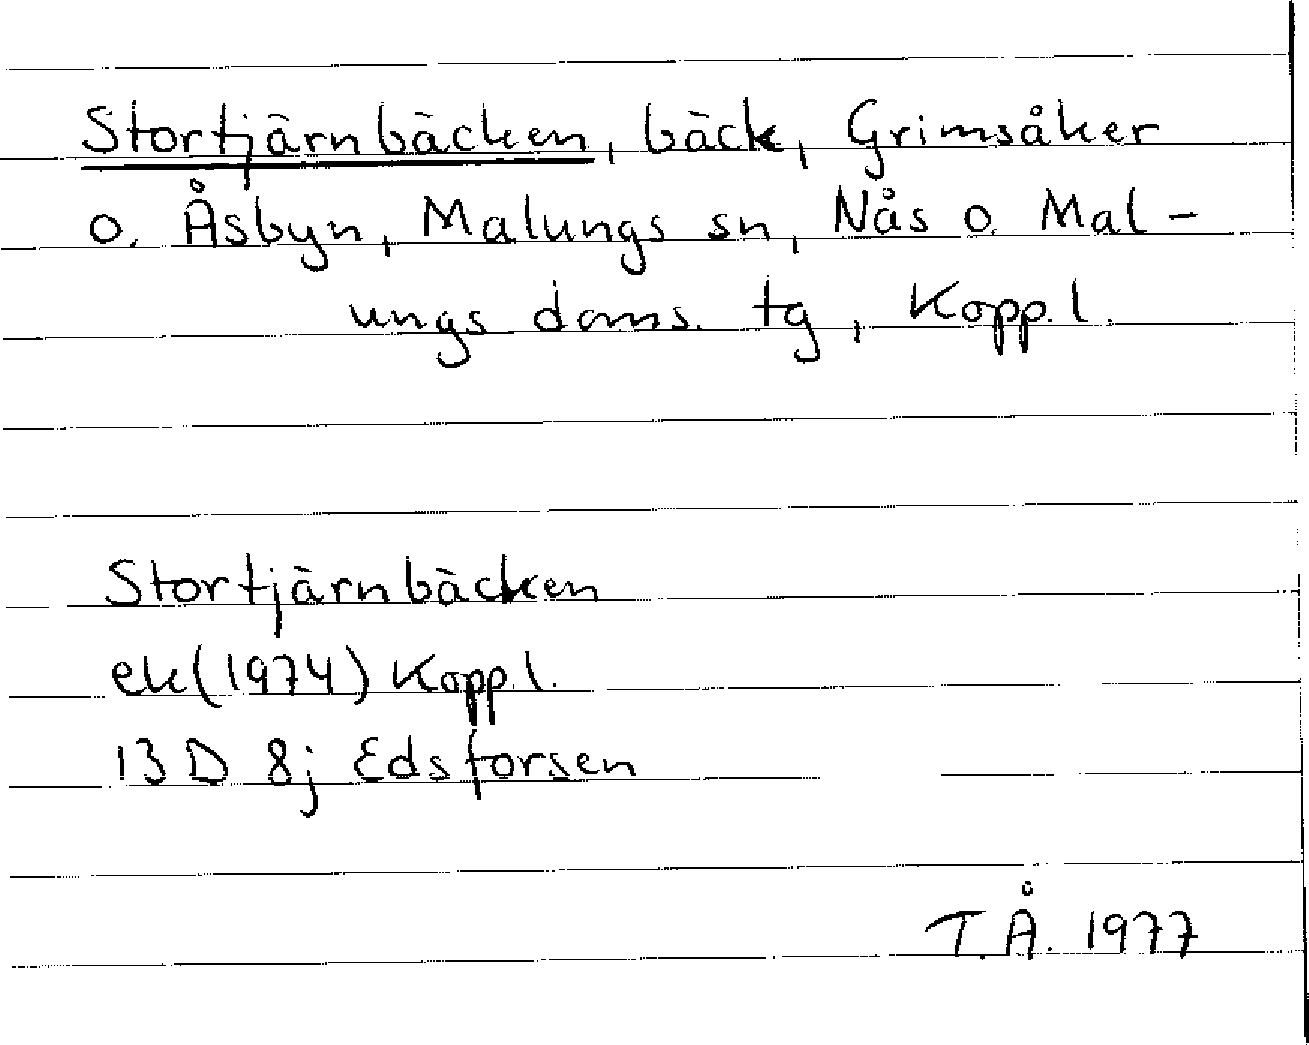 Stortjärnbäcken, bäck, Grimsåker
o. Åsbyn, Malungs sn, Nås o. Mal-
ungs doms. tg, Kopp. l.
Stortjärnbäcken
ek (1974) Kopp. l.
13 D 8j Edsforsen
T.Å. 1977